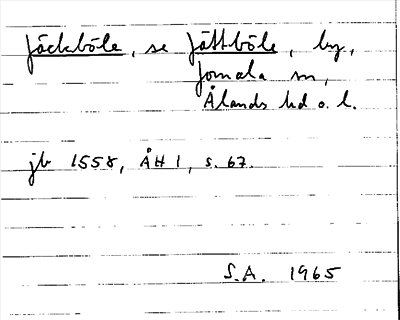 Jäckböle, se Jättböle, by,
Jomala sn,
Ålands hd o. l.
jb 1558, ÅH 1, s. 67.
S.A. 1965